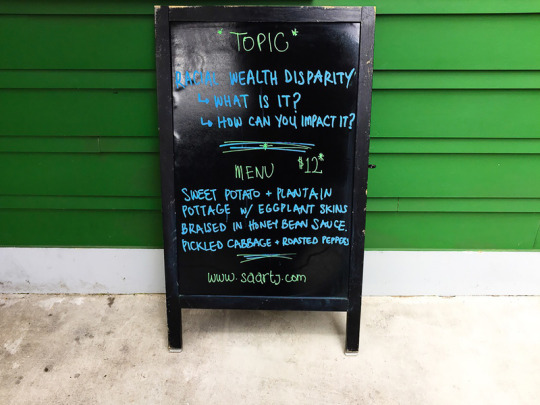 *TOPIC*
RACIAL WEALTH DISPARITY
↳ WHAT IS IT?
↳ HOW CAN YOU IMPACT IT?
MENU $12*
SWEET POTATO + PLANTAIN
POTTAGE W/ EGGPLANT SKINS
BRAISED IN HONEY BEAN SAUCE.
PICKLED CABBAGE + ROASTED PEPPERS
www.saartj.com